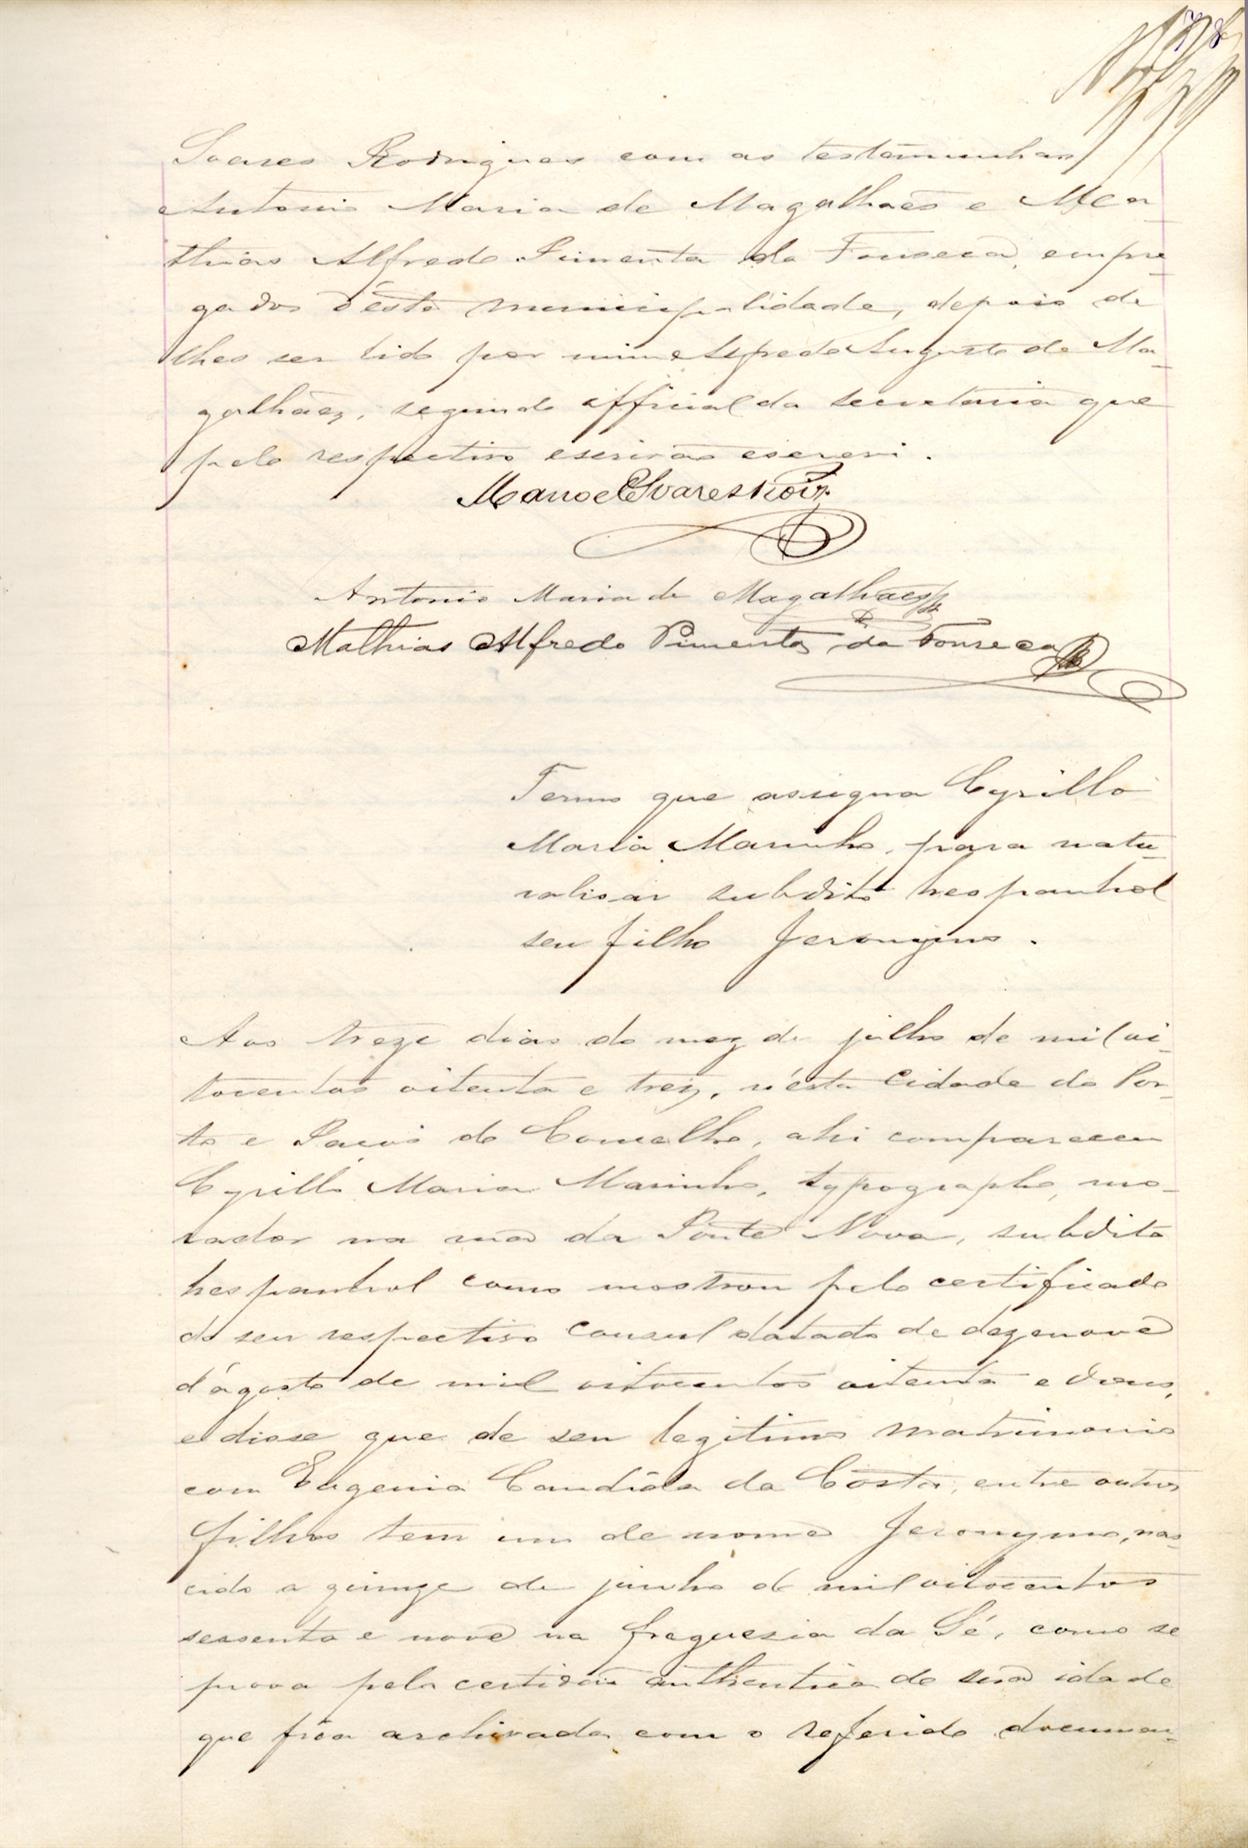 78
Soares Rodrigues com as testemunhas
Antonio Maria de Magalhães e Ma-
thias Alfredo Pimenta da Fonseca, empre-
gados d'esta municipalidade, depois de
lhes ser lido por mim Alfredo Augusto de Ma-
galhães, segundo official da secretaria que
pelo respectivo escrivão escrevi.
Manoel Soares Roiz
Antonio Maria de Magalhães
Mathias Alfredo Pimenta da Fonseca
Termo que assigna Cyrillo
Maria Marinho, para natu-
ralisar subdito hespanhol
seu filho Jeronymo.
Aos treze dias do mez de julho de mil oi-
tocentos oitenta e trez, n'esta Cidade do Por-
to e Paços do Concelho, ahi compareceu
Cyrillo Maria Marinho, typographo, mo-
rador na rua da Ponte Nova, subdito
hespanhol como mostrou pelo certificado
do seu respectivo Consul datado de dezenove
d'agosto de mil oitocentos oitenta e dous,
e disse que de seu legitimo matrimonio
com Eugenia Candida da Costa, entre outros
filhos tem um de nome Jeronymo, nas-
cido a quinze de junho de mil oitocentos
sessenta e nove na freguezia da Sé, como se
prova pela certidão authentica de sua idade
que fica archivada com o referido documen-